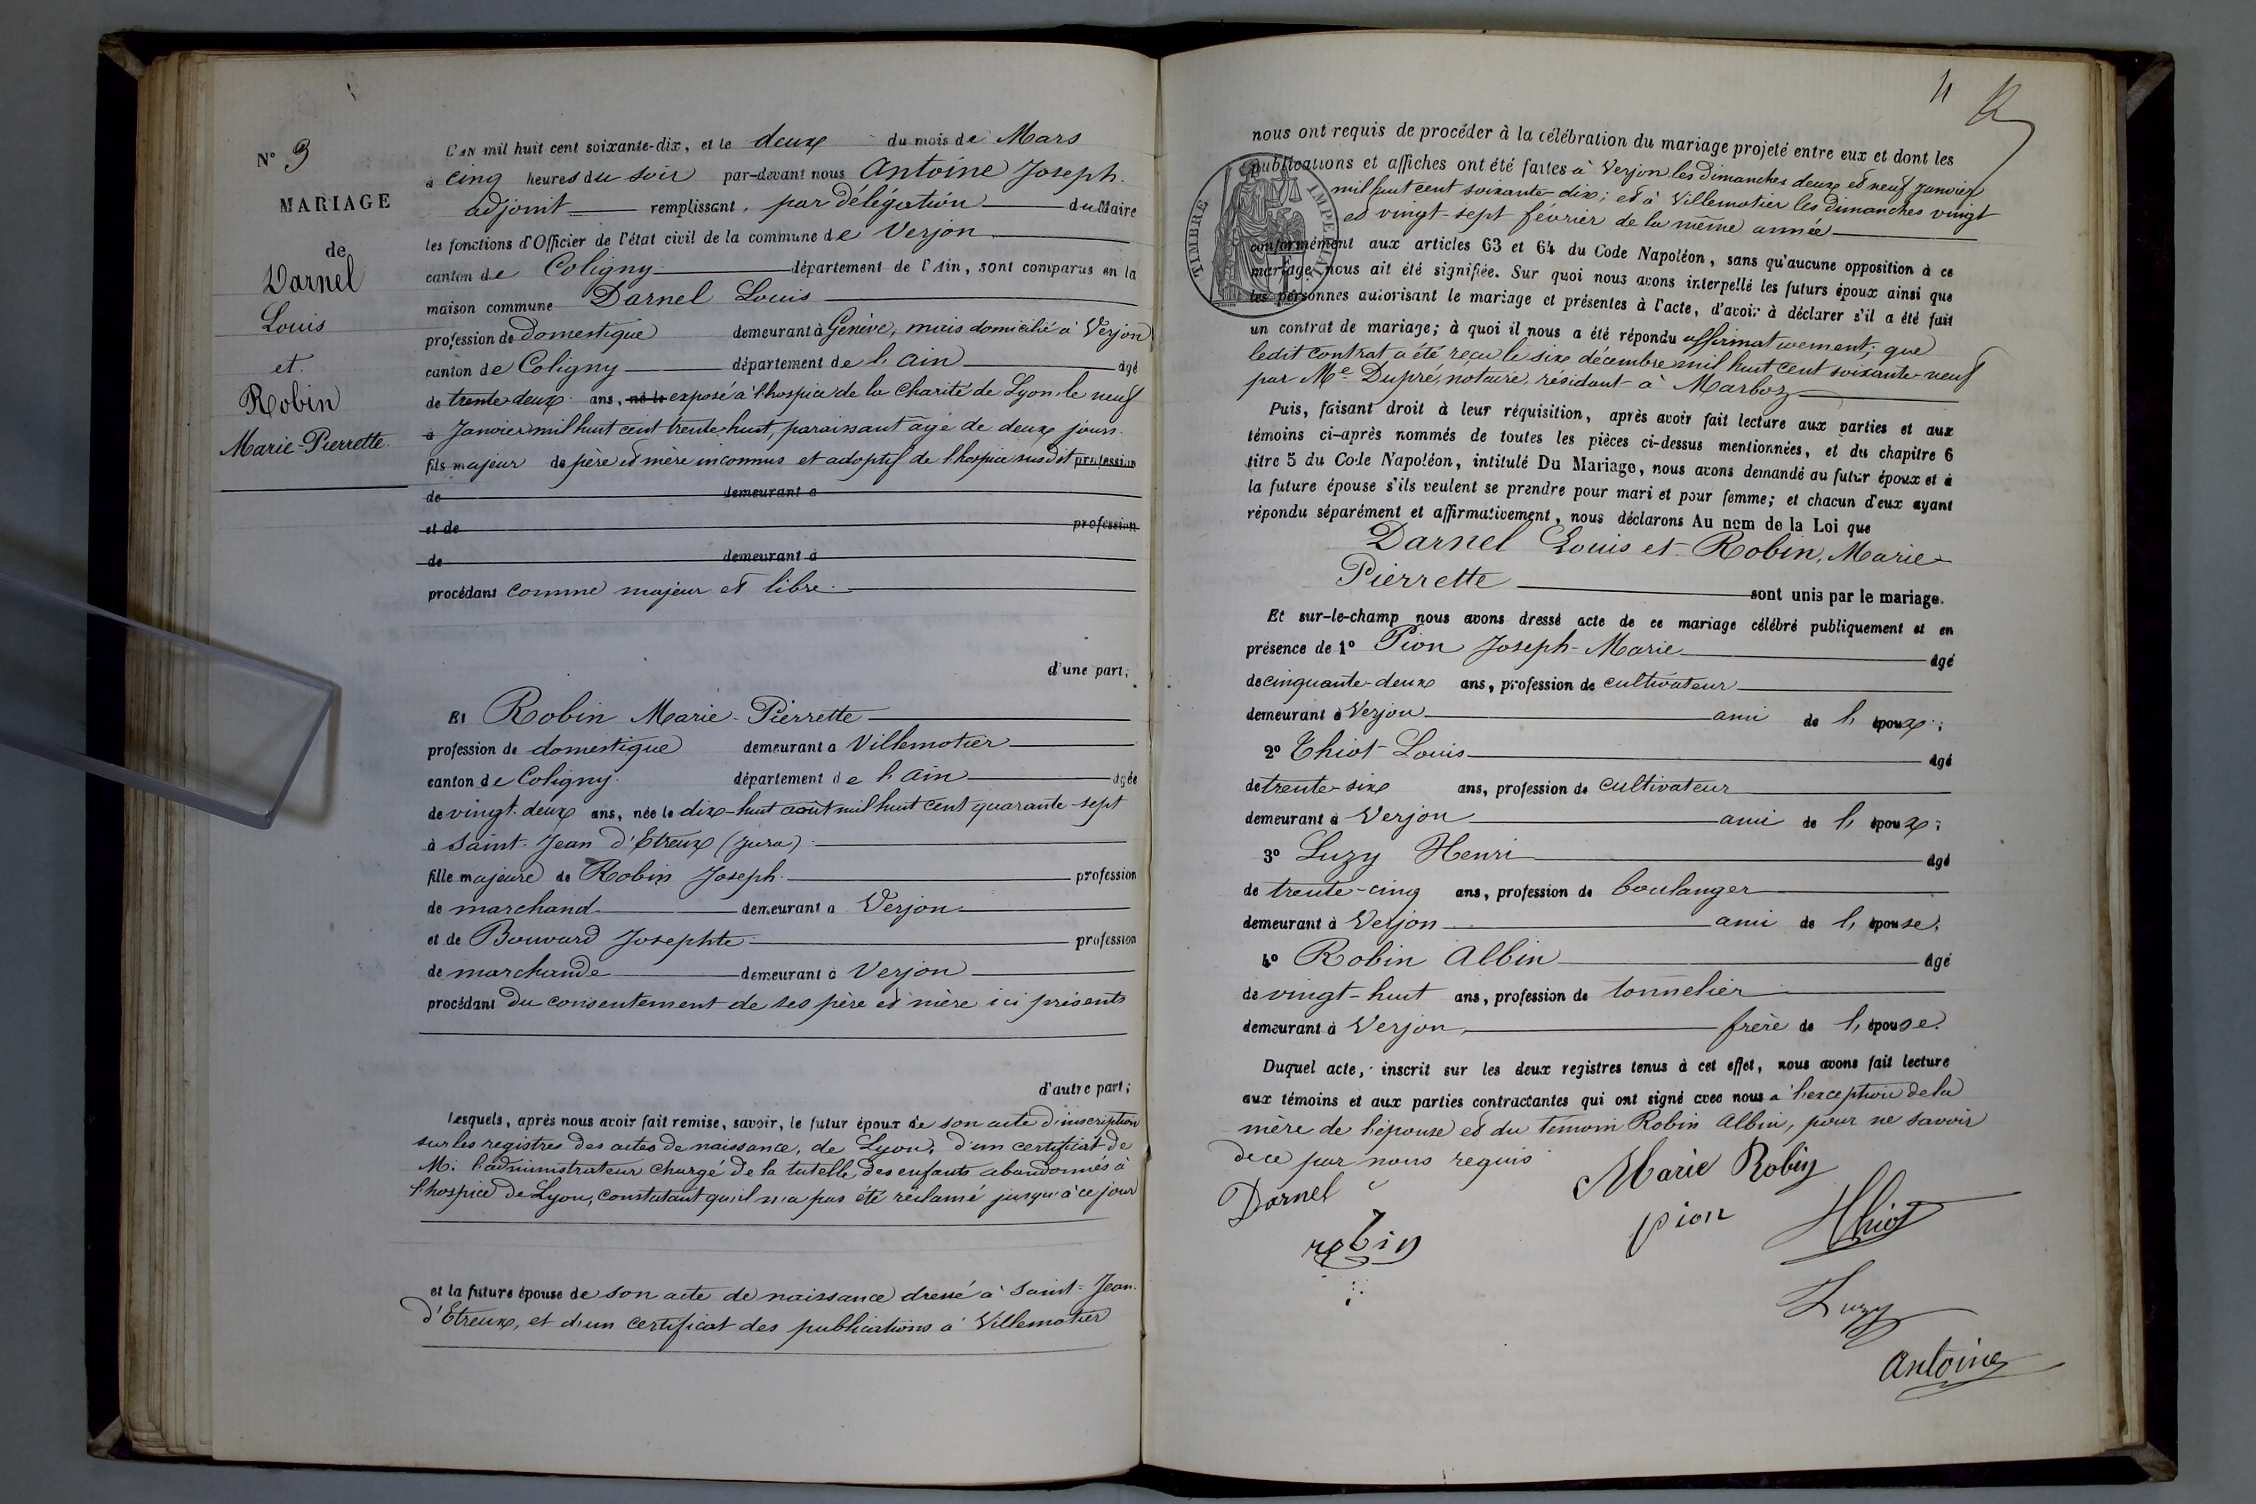 N° 3
MARIAGE
de
Darnel
Louis
et
Robin
Marie-Pierrette
L'AN mil huit cent soixante-dix, et le deux du mois de Mars
à cinq heures du soir par-devant nous Antoine Joseph
adjoint remplissant, par délégation du Maire
les fonctions d'Officier de l'état civil de la commune de Verjon
canton de Coligny département de l'Ain, sont comparus en la
maison commune Darnel Louis
profession de domestique demeurant à Genève, mais domicilié à Verjon
canton de Coligny département de l'ain âgé
de trente-deux ans, né le exposé à l'hospice de la Charité de Lyon le neuf
à Janvier mil huit cent trente-huit, paraissant âgé de deux jours
fils majeur de père et mère inconnus et adoptif de l'hospice susdit profession
de demeurant à
et de profession
de demeurant à
procédant comme majeur et libre
d'une part;
Et Robin Marie-Pierrette
profession de domestique demeurant à Villemotier
canton de Coligny département de l'ain âgée
de vingt-deux ans, née le dix-huit août mil huit cent quarante-sept
à Saint-Jean d'Etreux (Jura)
fille majeure de Robin Joseph profession
de marchand demeurant à Verjon
et de Bouvard Josephte profession
de marchande demeurant à Verjon
procédant du consentement de ses père et mère ici présents
d'autre part;
Lesquels, après nous avoir fait remise, savoir, le futur époux de son acte d'inscription
sur les registres des actes de naissance, de Lyon, d'un certificat de
Mr l'administrateur chargé de la tutelle des enfants abandonnés à
l'hospice de Lyon, constatant qu'il n'a pas été réclamé jusqu'à ce jour
et la future épouse de son acte de naissance dressé à Saint-Jean
d'Etreux, et d'un certificat des publications à Villemotier
4
nous ont requis de procéder à la célébration du mariage projeté entre eux et dont les
publications et affiches ont été faites à Verjon les dimanches deux et neuf janvier
mil huit cent soixante-dix; et à Villemotier les dimanches vingt
et vingt-sept février de la même année
TIMBRE IMPÉRIAL
conformément aux articles 63 et 64 du Code Napoléon, sans qu'aucune opposition à ce
mariage nous ait été signifiée. Sur quoi nous avons interpellé les futurs époux ainsi que
les personnes autorisant le mariage et présentes à l'acte, d'avoir à déclarer s'il a été fait
un contrat de mariage; à quoi il nous a été répondu affirmativement; que
ledit contrat a été reçu le six décembre mil huit cent soixante-neuf
par Me Dupré, notaire, résidant à Marboz
Puis, faisant droit à leur réquisition, après avoir fait lecture aux parties et aux
témoins ci-après nommés de toutes les pièces ci-dessus mentionnées, et du chapitre 6
titre 5 du Code Napoléon, intitulé Du Mariage, nous avons demandé au futur époux et à
la future épouse s'ils veulent se prendre pour mari et pour femme; et chacun d'eux ayant
répondu séparément et affirmativement, nous déclarons Au nom de la Loi que
Darnel Louis et Robin, Marie
Pierrette sont unis par le mariage.
Et sur-le-champ nous avons dressé acte de ce mariage célébré publiquement et en
présence de 1° Pion Joseph-Marie âgé
de cinquante-deux ans, profession de cultivateur
demeurant à Verjon ami de l'époux;
2° Thiot Louis âgé
de trente-six ans, profession de cultivateur
demeurant à Verjon ami de l'époux;
3° Luzy Henri âgé
de trente-cinq ans, profession de boulanger
demeurant à Verjon ami de l'épouse;
4° Robin Albin âgé
de vingt-huit ans, profession de tonnelier
demeurant à Verjon, frère de l'épouse.
Duquel acte, inscrit sur les deux registres tenus à cet effet, nous avons fait lecture
aux témoins et aux parties contractantes qui ont signé avec nous à l'exception de la
mère de l'épouse et du témoin Robin Albin, pour ne savoir
de ce par nous requis
Darnel Marie Robin
robin pion Thiot
Luzy
Antoine